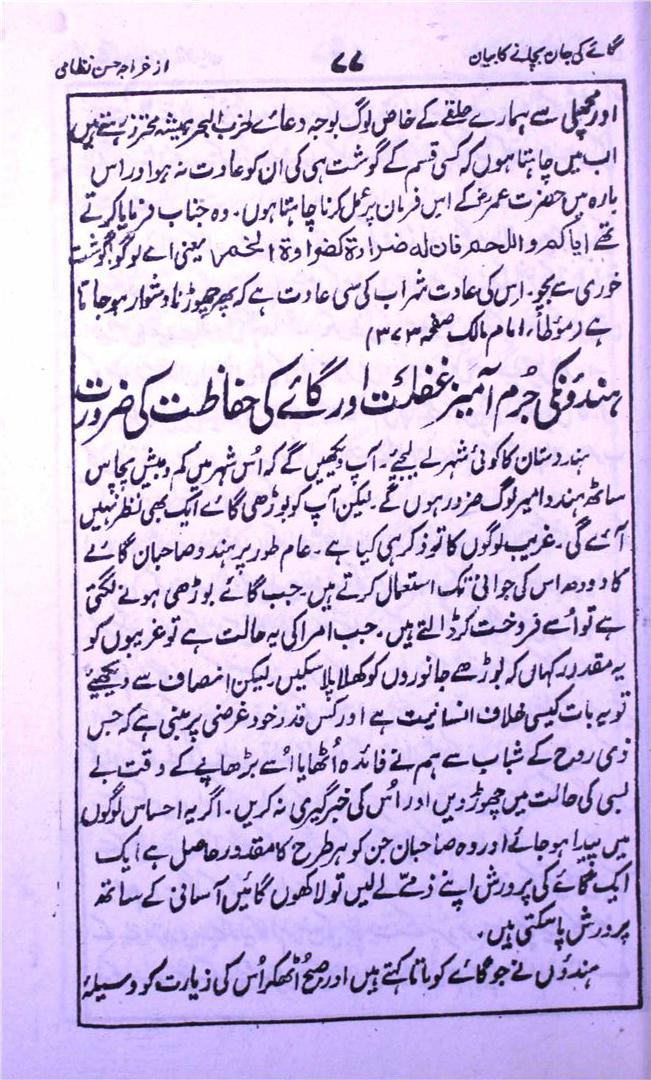 گائے کی جان بچانے کا بیان ۷۷ از خواجہ حسن نظامی
اور مچھلی سے ہمارے حلقے کے خاص لوگ بوجہ دعائے حزب البحر ہمیشہ محترز رہتے ہیں
اب میں چاہتا ہوں کہ کسی قسم کے گوشت ہی کی ان کو عادت نہ ہو اور اس
بارہ میں حضرت عمرؓ کے اس فرمان پر عمل کرنا چاہتا ہوں۔ وہ جناب فرمایا کرتے
تھے ایاکم واللحم فان له ضراوة کضراوة الخمر یعنی اے لوگو! گوشت
خوری سے بچو۔ اس کی عادت شراب کی سی عادت ہے کہ پھر چھوڑنا دشوار ہو جاتا
ہے (مؤطاء امام مالک صفحہ ۳۷۳)
ہندؤنکی جُرم آمیز غفلت اور گائے کی حفاظت کی ضرورت
ہندوستان کا کوئی شہر لے لیجئے۔ آپ دیکھیں گے کہ اُس شہر میں کم و بیش پچاس
ساٹھ ہندو امیر لوگ ضرور ہوں گے۔ لیکن آپ کو بوڑھی گائے ایک بھی نظر نہیں
آئے گی۔ غریب لوگوں کا تو ذکر ہی کیا ہے۔ عام طور پر ہندو صاحبان گائے
کا دودھ اس کی جوانی تک استعمال کرتے ہیں۔ جب گائے بوڑھی ہونے لگتی
ہے تو اُسے فروخت کر ڈالتے ہیں۔ جب امرا کی یہ حالت ہے تو غریبوں کو
یہ مقدور کہاں کہ بوڑھے جانوروں کو کھلا پلا سکیں۔ لیکن انصاف سے دیکھئے
تو یہ بات کیسی خلاف انسانیت ہے اور کس قدر خود غرضی پر مبنی ہے کہ جس
ذی روح کے شباب سے ہم نے فائدہ اُٹھایا اُسے بڑھاپے کے وقت بے
بسی کی حالت میں چھوڑ دیں اور اُس کی خبر گیری نہ کریں۔ اگر یہ احساس لوگوں
میں پیدا ہو جائے اور وہ صاحبان جن کو ہر طرح کا مقدور حاصل ہے ایک
ایک گائے کی پرورش اپنے ذمے لے لیں تو لاکھوں گائیں آسانی کے ساتھ
پرورش پا سکتی ہیں۔
ہندؤں نے جو گائے کو ماتا کہتے ہیں اور صبح اُٹھکر اُس کی زیارت کو وسیلۂ